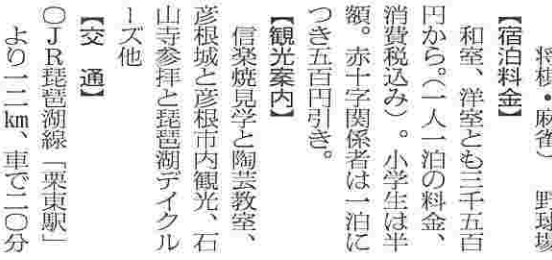 将棋・麻雀） 野球場
【宿泊料金】
和室、洋室とも三千五百
円から。（一人一泊の料金、
消費税込み）。小学生は半
額。赤十字関係者は一泊に
つき五百円引き。
【観光案内】
信楽焼見学と陶芸教室、
彦根城と彦根市内観光、石
山寺参拝と琵琶湖デイクル
ーズ他
【交　通】
○ＪＲ琵琶湖線「栗東駅」
より一二km、車で二〇分